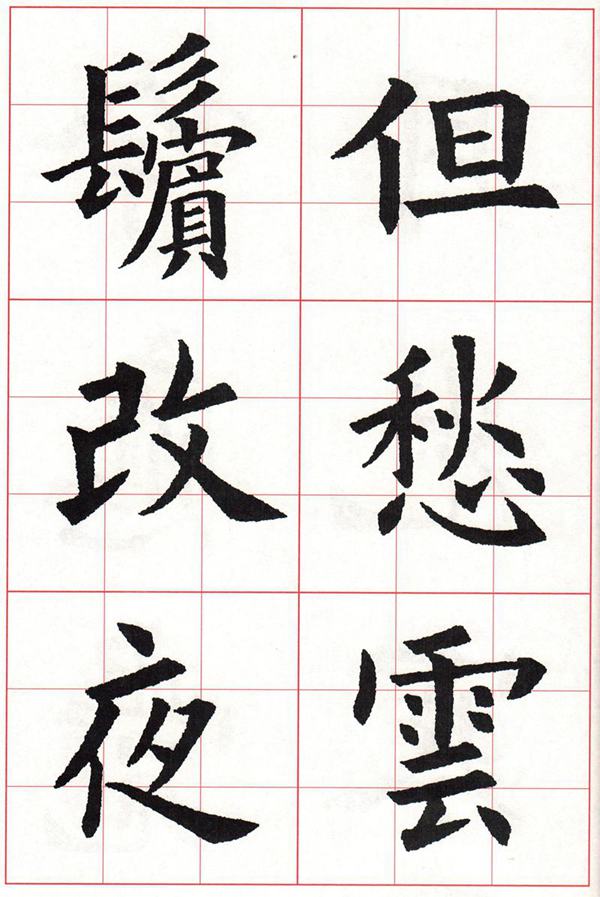 但愁雲
鬢改夜